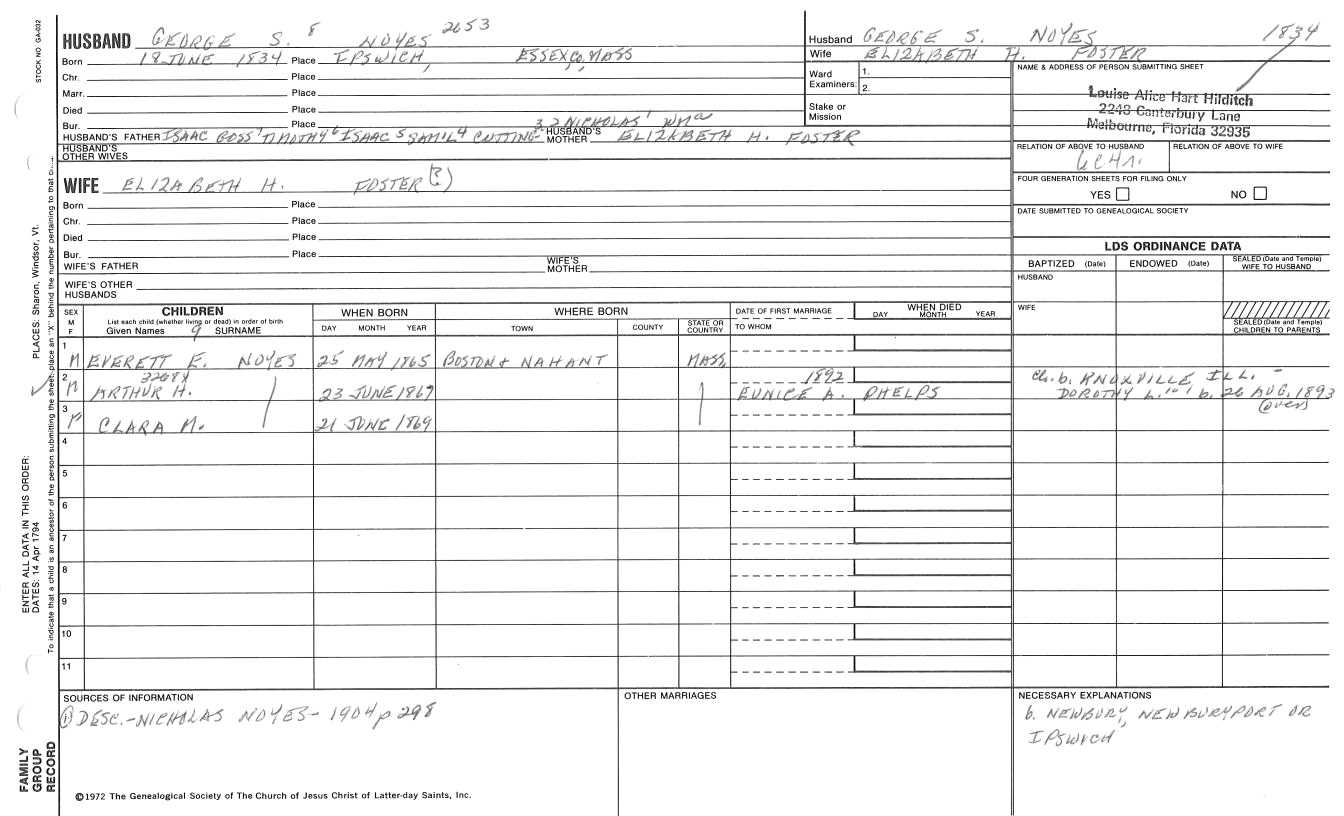 STOCK NO GA-032
HUSBAND GEORGE S. 8 NOYES 2653
Born 18 JUNE 1834 Place IPSWICH, ESSEX CO, MASS
Chr. Place
Marr. Place
Died Place
Bur. Place
HUSBAND'S FATHER ISAAC GOSS 7 TIMOTHY 6 ISAAC 5 SAM'L 4 CUTTING 3 2 NICHOLAS' WMa
HUSBAND'S MOTHER ELIZABETH H. FOSTER
HUSBAND'S OTHER WIVES
Husband GEORGE S. NOYES 1834
Wife ELIZABETH H. FOSTER
Ward Examiners: 1.
2.
Stake or Mission
NAME & ADDRESS OF PERSON SUBMITTING SHEET
Louise Alice Hart Hilditch
2248 Canterbury Lane
Melbourne, Florida 32935
RELATION OF ABOVE TO HUSBAND RELATION OF ABOVE TO WIFE
6C4R.
FOUR GENERATION SHEETS FOR FILING ONLY
YES NO
DATE SUBMITTED TO GENEALOGICAL SOCIETY
WIFE ELIZABETH H. FOSTER (?)
Born Place
Chr. Place
Died Place
Bur. Place
WIFE'S FATHER WIFE'S MOTHER
WIFE'S OTHER HUSBANDS
LDS ORDINANCE DATA
BAPTIZED (Date) ENDOWED (Date) SEALED (Date and Temple) WIFE TO HUSBAND
HUSBAND
WIFE
SEALED (Date and Temple) CHILDREN TO PARENTS
SEX M F CHILDREN WHEN BORN WHERE BORN DATE OF FIRST MARRIAGE WHEN DIED
List each child (whether living or dead) in order of birth
Given Names 9 SURNAME DAY MONTH YEAR TOWN COUNTY STATE OR COUNTRY TO WHOM DAY MONTH YEAR
1 M EVERETT E. NOYES 25 MAY 1865 BOSTON & NAHANT MASS,
2 3268X 1892 Ch. b. KNOXVILLE, ILL. -
M ARTHUR H. 23 JUNE 1867 EUNICE A. PHELPS DOROTHY L. 10 b. 26 AUG. 1893
(over)
3 F CLARA M. 21 JUNE 1869
4
5
6
7
8
9
10
11
SOURCES OF INFORMATION
① DESC.-NICHOLAS NOYES-1904 p 298
OTHER MARRIAGES
NECESSARY EXPLANATIONS
b. NEWBURY, NEWBURYPORT OR
IPSWICH
©1972 The Genealogical Society of The Church of Jesus Christ of Latter-day Saints, Inc.
PLACES: Sharon, Windsor, Vt.
ENTER ALL DATA IN THIS ORDER:
DATES: 14 Apr 1794
To indicate that a child is an ancestor of the person submitting the sheet, place an "X" behind the number pertaining to that
FAMILY
GROUP
RECORD